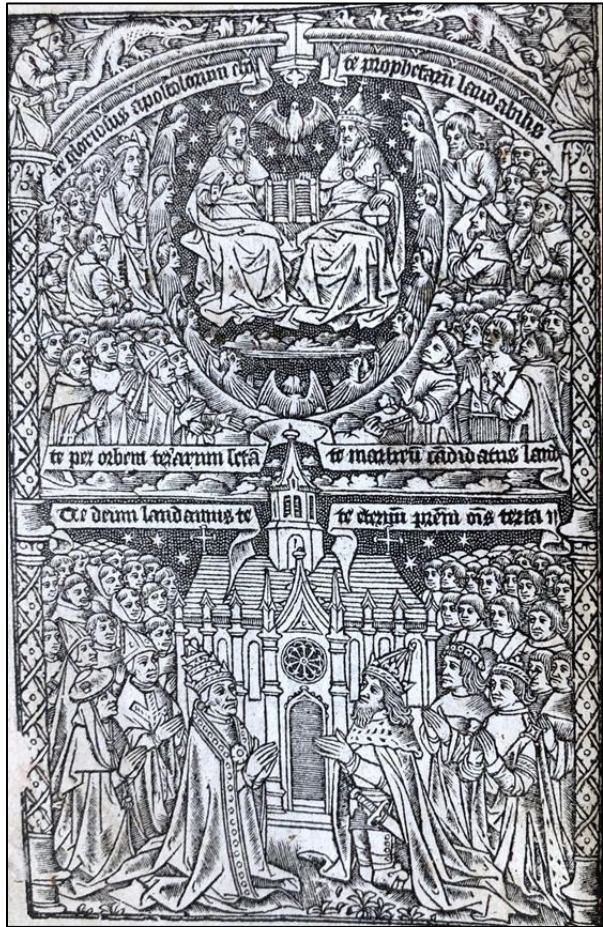 te gloriosus apostolorum cho te prophetarū laudabilis.
te per orbem terrarum sctā te martirū cādidatus laud
Te deum laudamus te te eternū prēm oīs terra v